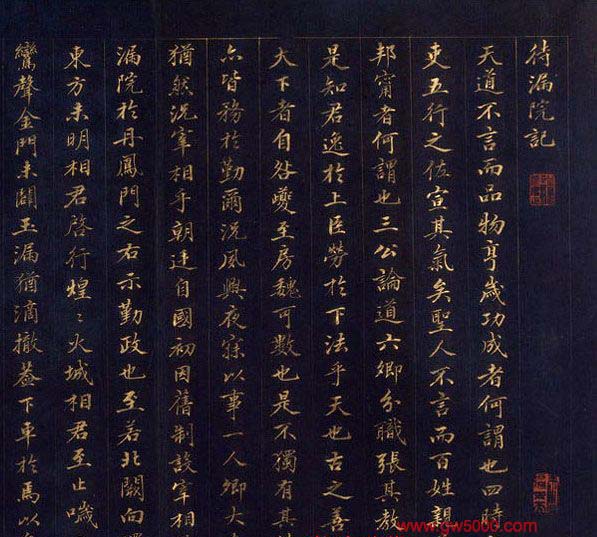 待漏院記
天道不言而品物亨歲功成者何謂也四時
吏五行之佐宣其氣矣聖人不言而百姓親
邦甯者何謂也三公論道六卿分職張其教
是知君逸於上臣勞於下法乎天也古之善
天下者自咎夔至房魏可數也是不獨有其
亦皆務於勤爾況夙興夜寐以事一人卿大
猶然況宰相乎朝廷自國初因舊制設宰相
漏院於丹鳳門之右示勤政也至若北闕向
東方未明相君啓行煌〻火城相君至止噦
鸞聲金門未闢玉漏猶滴撤蓋下車於焉以
www.gw5000.com